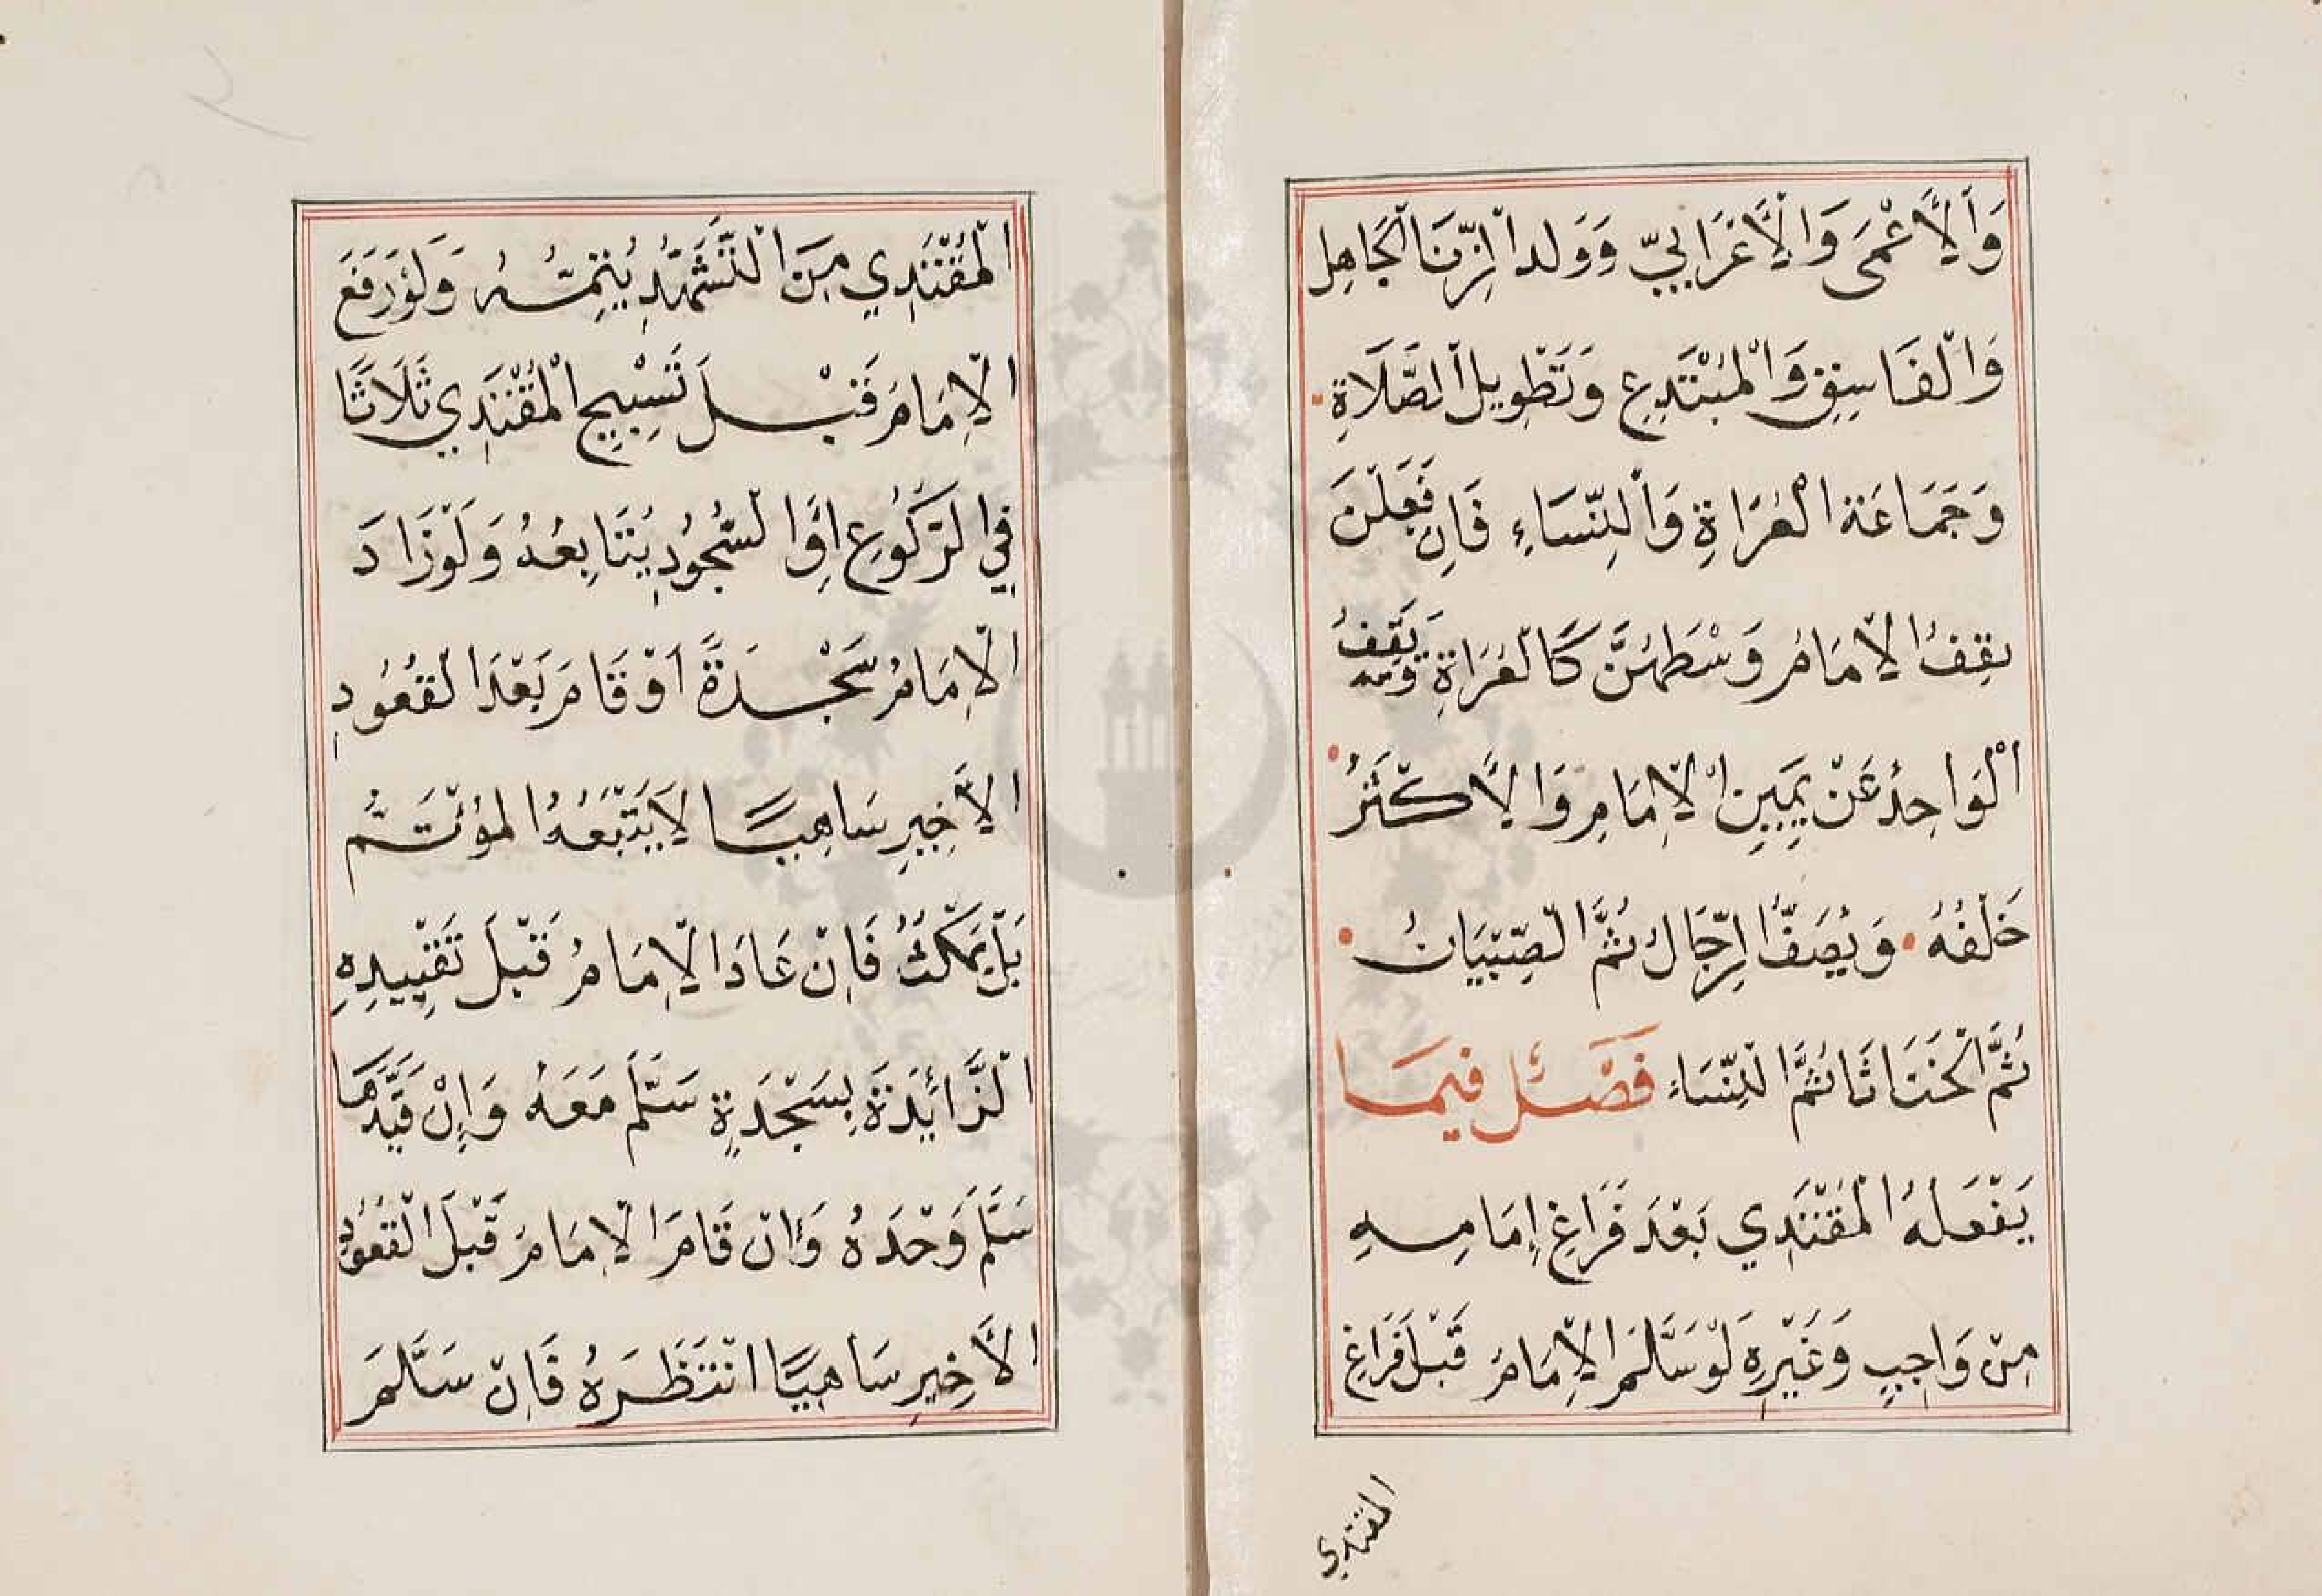 وَالْأَعْمَى وَالْأَعْرَابِيِّ وَوَلَدِ الزِّنَا الْجَاهِلِ
وَالْفَاسِقِ وَالْمُبْتَدِعِ وَتَطْوِيلُ الصَّلَاةِ
وَجَمَاعَةُ الْعُرَاةِ وَالنِّسَاءِ فَاِنْ فَعَلْنَ
يَقِفُ الْإِمَامُ وَسْطَهُنَّ كَالْعُرَاةِ وَيَقِفُ
الْوَاحِدُ عَنْ يَمِينِ الْإِمَامِ وَالْأَكْثَرُ
خَلْفُهُ • وَيُصَفُّ الرِّجَالُ ثُمَّ الصِّبْيَانُ •
ثُمَّ الْخَنَاثَا ثُمَّ النِّسَاءِ فَصْلٌ فِيمَا
يَفْعَلُهُ الْمُقْتَدِي بَعْدَ فَرَاغِ إِمَامِهِ
مِنْ وَاجِبٍ وَغَيْرِهِ لَوْ سَلَّمَ الْإِمَامُ قَبْلَ فَرَاغِ
المقتدي
الْمُقْتَدِي مِنَ التَّشَهُّدِ يُتِمُّهُ وَلَوْ رَفَعَ
الْإِمَامُ قَبْلَ تَسْبِيحِ الْمُقْتَدِي ثَلَاثًا
فِي الرُّكُوعِ اَوِ السُّجُودِ يُتَابِعُهُ وَلَوْ زَادَ
الْإِمَامُ سَجْدَةً اَوْ قَامَ بَعْدَ الْقُعُودِ
الْأَخِيرِ سَاهِيًا لَا يَتْبَعُهُ الْمُؤْتَمُّ
بَلْ يَمْكُثُ فَاِنْ عَادَ الْإِمَامُ قَبْلَ تَقْيِيدِهِ
الزَّائِدَةَ بِسَجْدَةٍ سَلَّمَ مَعَهُ وَإِنْ قَيَّدَهَا
سَلَّمَ وَحْدَهُ وَإِنْ قَامَ الْإِمَامُ قَبْلَ الْقُعُودِ
الْأَخِيرِ سَاهِيًا انْتَظَرَهُ فَاِنْ سَلَّمَ